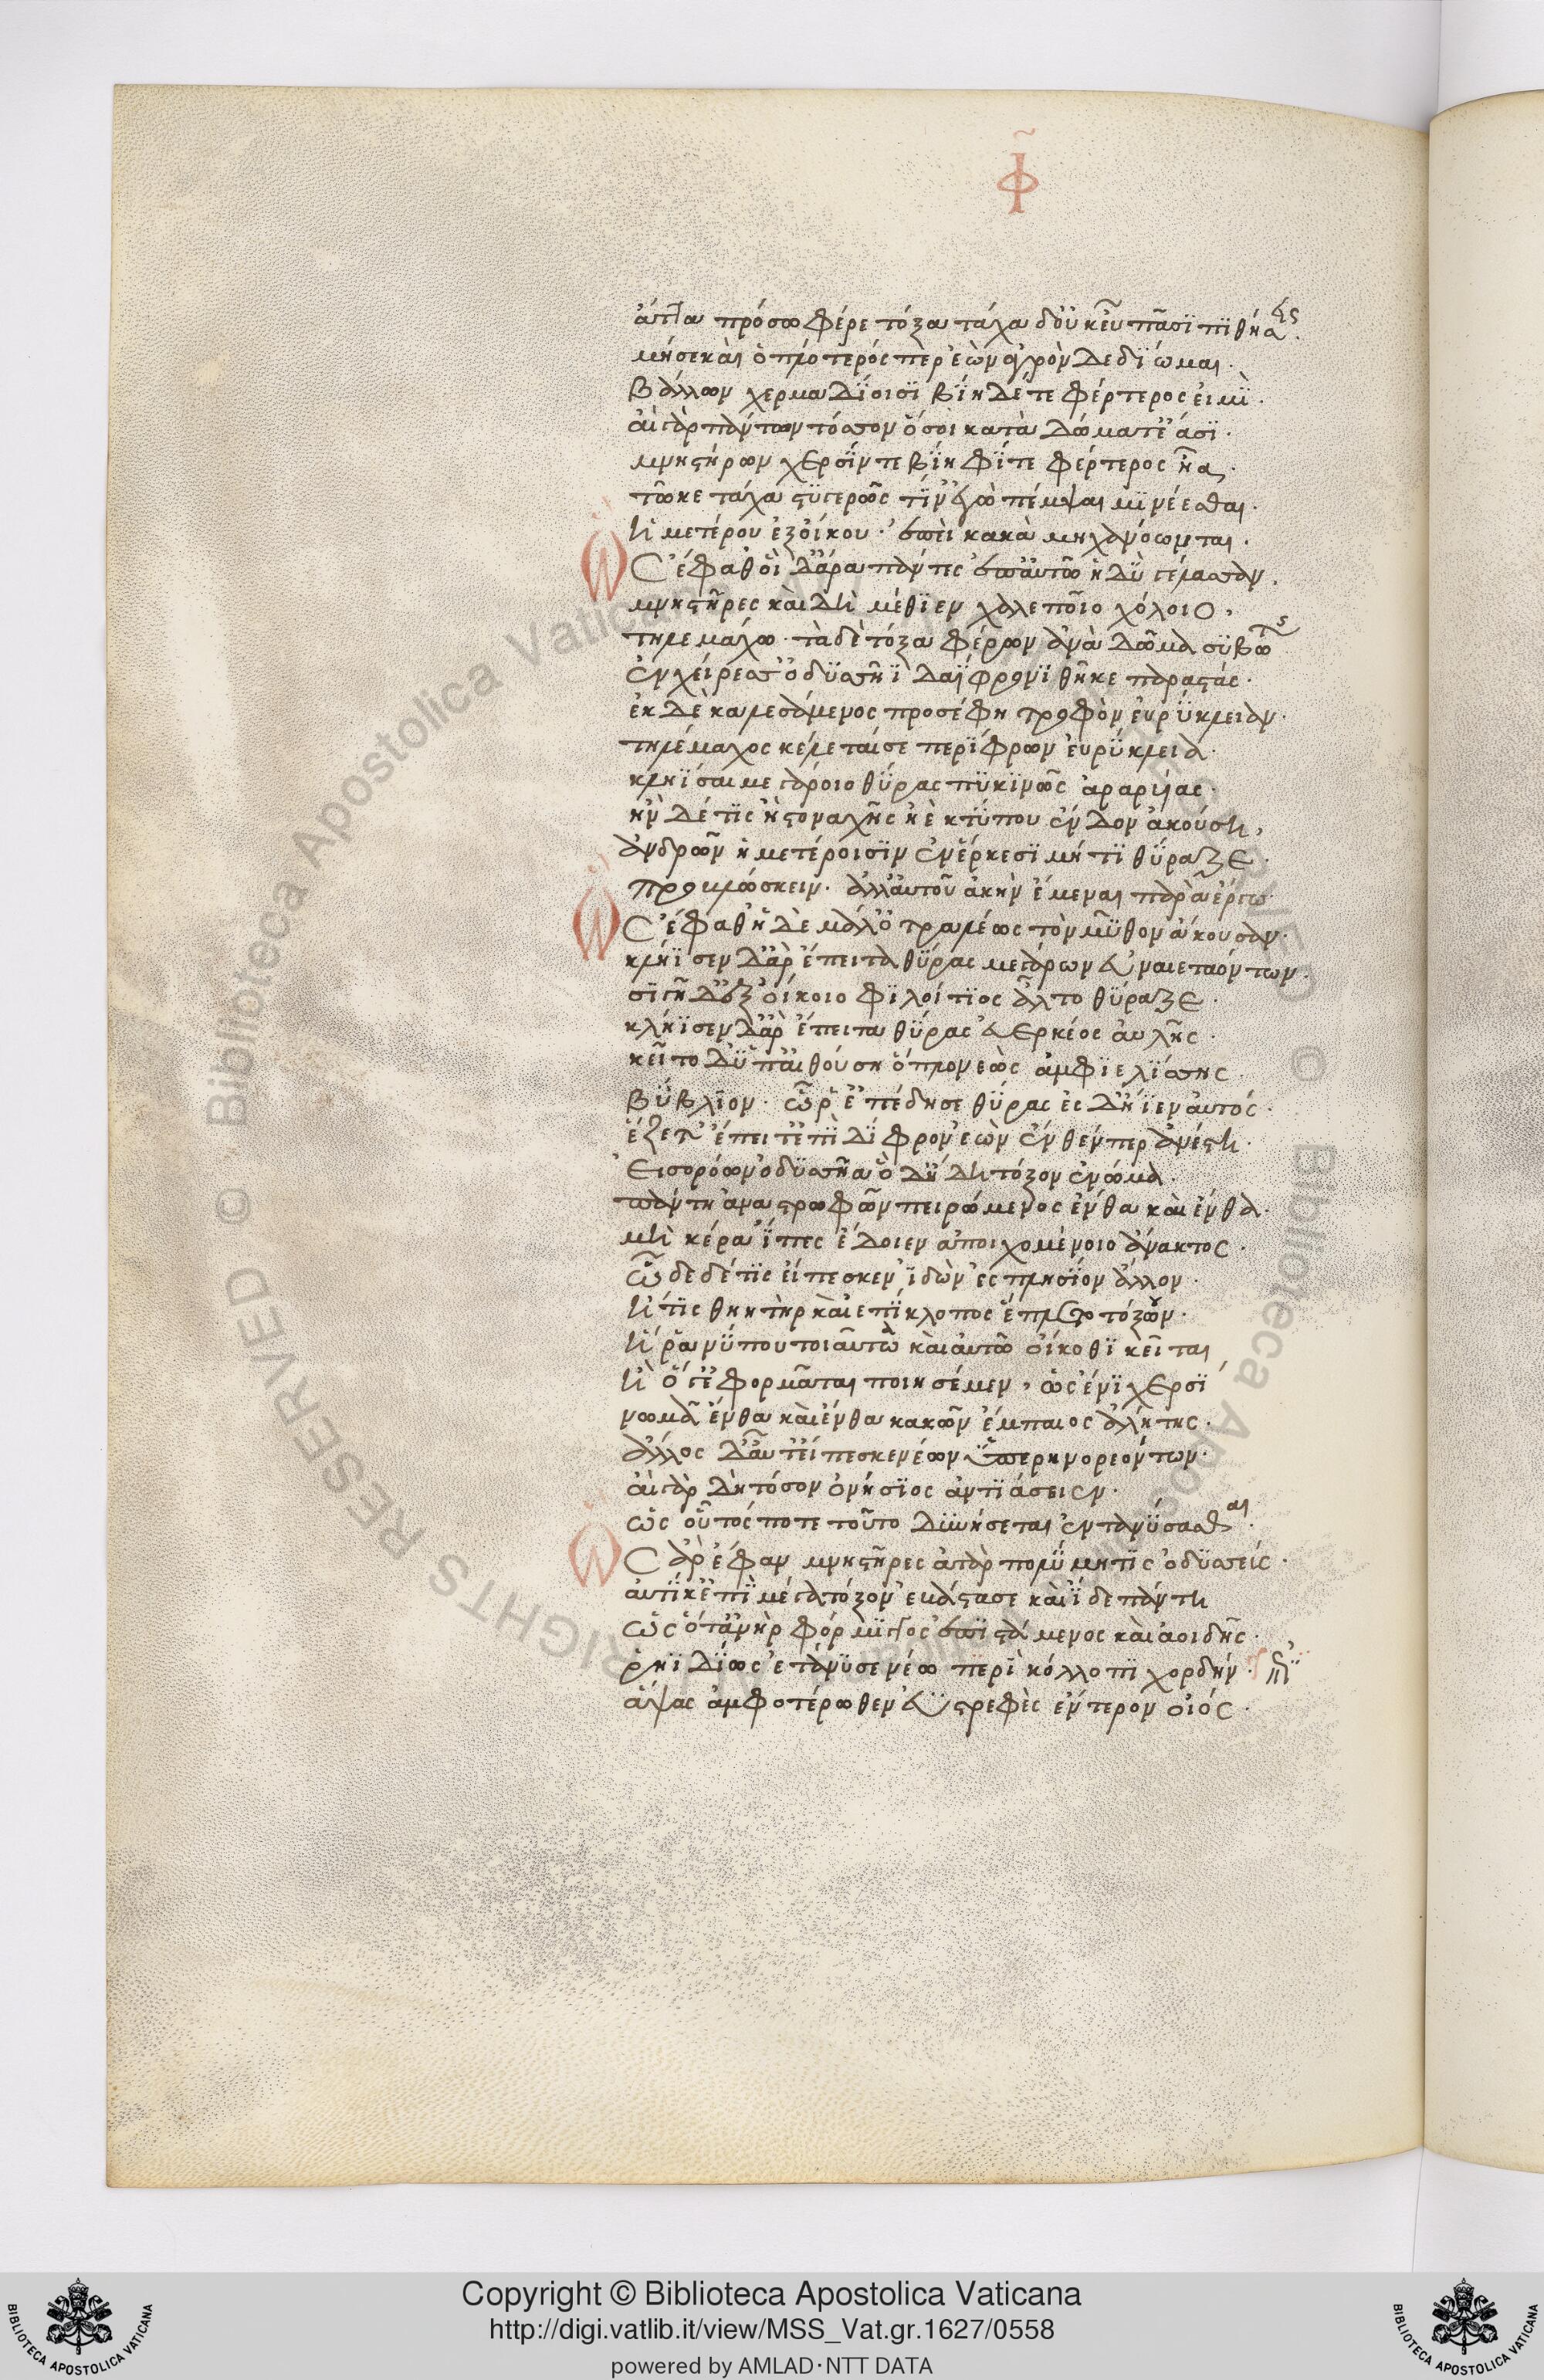 Φ
ἄττα πρόσω φέρε τόξα τάχα δ' οὐκ εὖ πᾶσϊ πϊθήσεις.
μή σε καὶ ὁπλότερός περ ἐὼν ἀγρὸν δὲ δϊώμαι.
βάλλων χερμαδΐοισϊ βΐη δέ τε φέρτερος εἰμΐ.
αἲ γὰρ πάντων τόσσον ὅσοι κατὰ δώματ' ἔασϊ.
μνηστήρων χερσΐν τε βΐηφΐ τε φέρτερος ἦα.
τῶ κε τάχα στϋγερῶς τΐν' ἐγὼ πέμψαι μϊ νέεσθαι.
ἡμετέρου ἐξ οἴκου. ἐπεὶ κακὰ μηχανόωνται.
Ὣς ἔφαθ' οἳ δ' ἄρα πάντες ἐπ' αὐτῶ ἡδὺ γέλασσαν.
μνηστῆρες καὶ δὴ μέθϊεν χαλεποῖο χόλοιο,
τηλεμάχω. τὰ δὲ τόξα φέρων ἀνὰ δῶμα σϋβώτης
ἐν χείρεσσ' ὀδϋσσῆϊ δαΐφρονϊ θῆκε παραστάς.
ἐκ δὲ καλεσάμενος προσέφη τροφὸν εὐρΰκλειαν.
τηλέμαχος κέλεταί σε περΐφρων εὐρΰκλεια.
κληΐσαι μεγάροιο θΰρας πϋκϊνῶς ἀραρυίας.
ἢν δέ τϊς ἢ στοναχῆς ἠὲ κτΰπου ἔνδον ἀκούση,
ἀνδρῶν ἡμετέροισϊν ἐν ἕρκεσϊ μή τϊ θΰραζε.
προβλώσκειν. ἀλλ' αὐτοῦ ἀκὴν ἔμεναι παρὰ ἔργω.
Ὣς ἔφαθ' ἣ δὲ μάλ' ὀτραλέως τὸν μῦθον ἄκουσαν.
κλήϊσεν δ' ἄρ' ἔπειτα θΰρας μεγάρων εὐναιεταόντων.
σϊγῆ δ' ἐξ οἴκοιο φϊλοίτϊος ἆλτο θΰραζε.
κλήϊσεν δ' ἄρ' ἔπειτα θΰρας εὐερκέος αὐλῆς.
κεῖτο δ' ὑπ' αἰθούση ὅπλον νεὼς ἀμφϊελΐσσης.
βΰβλϊον. ὧ ῥ' ἐπέδησε θΰρας ἐς δ' ἤϊεν αὐτός.
ἕζετ' ἔπειτ' ἐπὶ δΐφρον ἐὼν ἔνθεν περ ἀνέστη.
Εἰσορόων ὀδϋσσῆα ὃ δ' ἤδη τόξον ἐνώμα.
πάντη ἀναστρωφῶν πειρώμενος ἔνθα καὶ ἔνθα.
μὴ κέρα ἶπες ἔδοιεν ἀποιχομένοιο ἄνακτος.
ὧδε δέ τϊς εἴπεσκεν ἰδὼν ἐς πλησΐον ἄλλον.
ἤ τϊς θηητὴρ καὶ ἐπΐκλοπος ἔπλετο τόξων.
ἤ ῥά νΰ που τοιαῦτ' αὐτῶ καὶ αὐτῶ οἴκοθϊ κεῖται
ἢ ὅ γ' ἐφορμᾶται ποιησέμεν, ὡς ἐνϊ χερσϊ
νωμᾶ ἔνθα καὶ ἔνθα κακῶν ἔμπαιος ἀλήτης.
ἄλλος δ' αὖτ' εἴπεσκε νέων ὑπερηνορεόντων.
αἲ γὰρ δὴ τόσον ὀνήσϊος ἀντϊάσειεν.
ὡς οὗτός ποτε τοῦτο δϋνήσεται ἐντανΰσασθαι.
Ὣς ἄρ' ἔφαν μνηστῆρες ἀτὰρ πολΰμητϊς ὀδϋσσεύς.
αὐτΐκ' ἐπεὶ μέγα τόξον ἐβάστασε καὶ ΐδε πάντη
ὡς ὅτ' ἀνὴρ φόρμϊγγος ἐπϊστάμενος καὶ ἀοιδῆς.
ῥηϊδΐως ἐτάνϋσε νέω περὶ κόλλοπϊ χορδήν.
ἅψας ἀμφοτέρωθεν ἐϋστρεφὲς ἔντερον οἰός.
Copyright © Biblioteca Apostolica Vaticana
http://digi.vatlib.it/view/MSS_Vat.gr.1627/0558
powered by AMLAD·NTT DATA
BIBLIOTECA APOSTOLICA VATICANA
BIBLIOTECA APOSTOLICA VATICANA